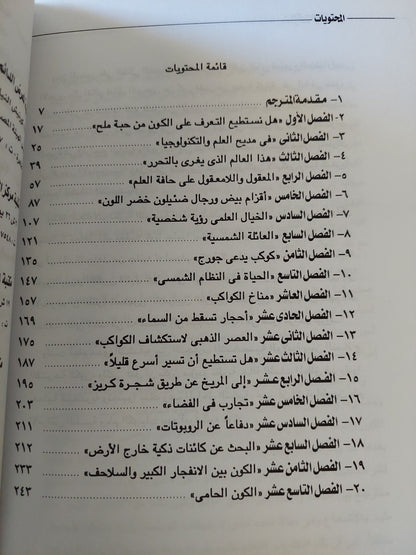 المحتويات
قائمة المحتويات
١- مقدمة المترجم ٧
٢- الفصل الأول «هل نستطيع التعرف على الكون من حبة ملح» ١٧
٣- الفصل الثانى «فى مديح العلم والتكنولوجيا» ٢٥
٤- الفصل الثالث «هذا العالم الذى يغرى بالتحرر» ٣٩
٥- الفصل الرابع «المعقول واللامعقول على حافة العلم» ٥٧
٦- الفصل الخامس «أقزام بيض ورجال ضئيلون خضر اللون» ٨٧
٧- الفصل السادس «الخيال العلمى رؤية شخصية» ١٠٧
٨- الفصل السابع «العائلة الشمسية» ١٢١
٩- الفصل الثامن «كوكب يدعى جورج» ١٣٥
١٠- الفصل التاسع «الحياة فى النظام الشمسى» ١٤٧
١١- الفصل العاشر «مناخ الكواكب» ١٥٧
١٢- الفصل الحادى عشر «أحجار تسقط من السماء» ١٦٩
١٣- الفصل الثانى عشر «العصر الذهبى لاستكشاف الكواكب» ١٧٥
١٤- الفصل الثالث عشر «هل تستطيع أن تسير أسرع قليلاً» ١٨٧
١٥- الفصل الرابع عشر «إلى المريخ عن طريق شجرة كريز» ١٩٥
١٦- الفصل الخامس عشر «تجارب فى الفضاء» ٢٠٣
١٧- الفصل السادس عشر «دفاعاً عن الروبوتات» ٢١١
١٨- الفصل السابع عشر «البحث عن كائنات ذكية خارج الأرض» ٢١٢
١٩- الفصل الثامن عشر «الكون بين الانفجار الكبير والسلاحف» ٢٣٣
٢٠- الفصل التاسع عشر «الكون الحامى» ٢٤٣